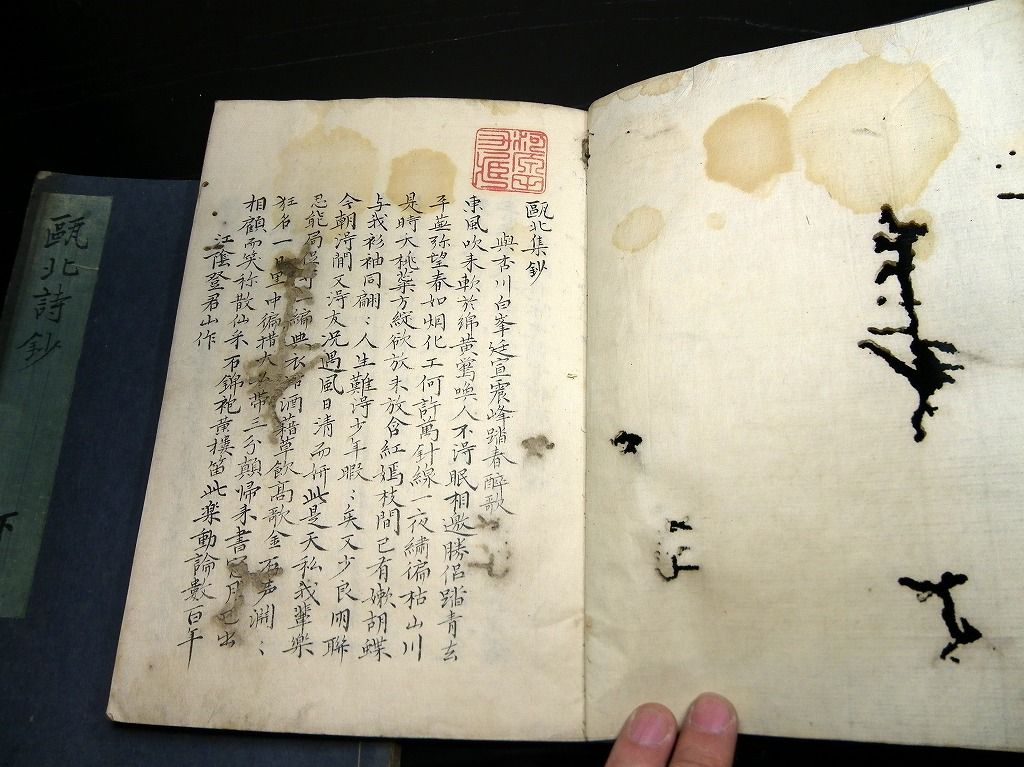 甌北集鈔
與杏川白峯廷宣震峰踏春醉歌
東風吹来軟於綿黄鶯喚人不淂眠相邀勝侶踏青去
平蕪弥望春如烟化工何許萬針線一夜繡徧枯山川
是時夭桃蘂方綻欲放未放含紅嫣枝間已有嫩胡蝶
与我衫袖同翩〻人生難淂少年暇〻矣又少良朋聯
今朝淂閒又淂友況遇風日清而妍此是天私我輩樂
忍能局促一編典衣酒藉草飲高歌金石声淵〻
狂名一里中徧措大帶三分顛歸来書月已出
相顧而笑称散仙采石錦袍黄樓笛此楽動論數百年
江陰登君山作
甌北詩鈔
下